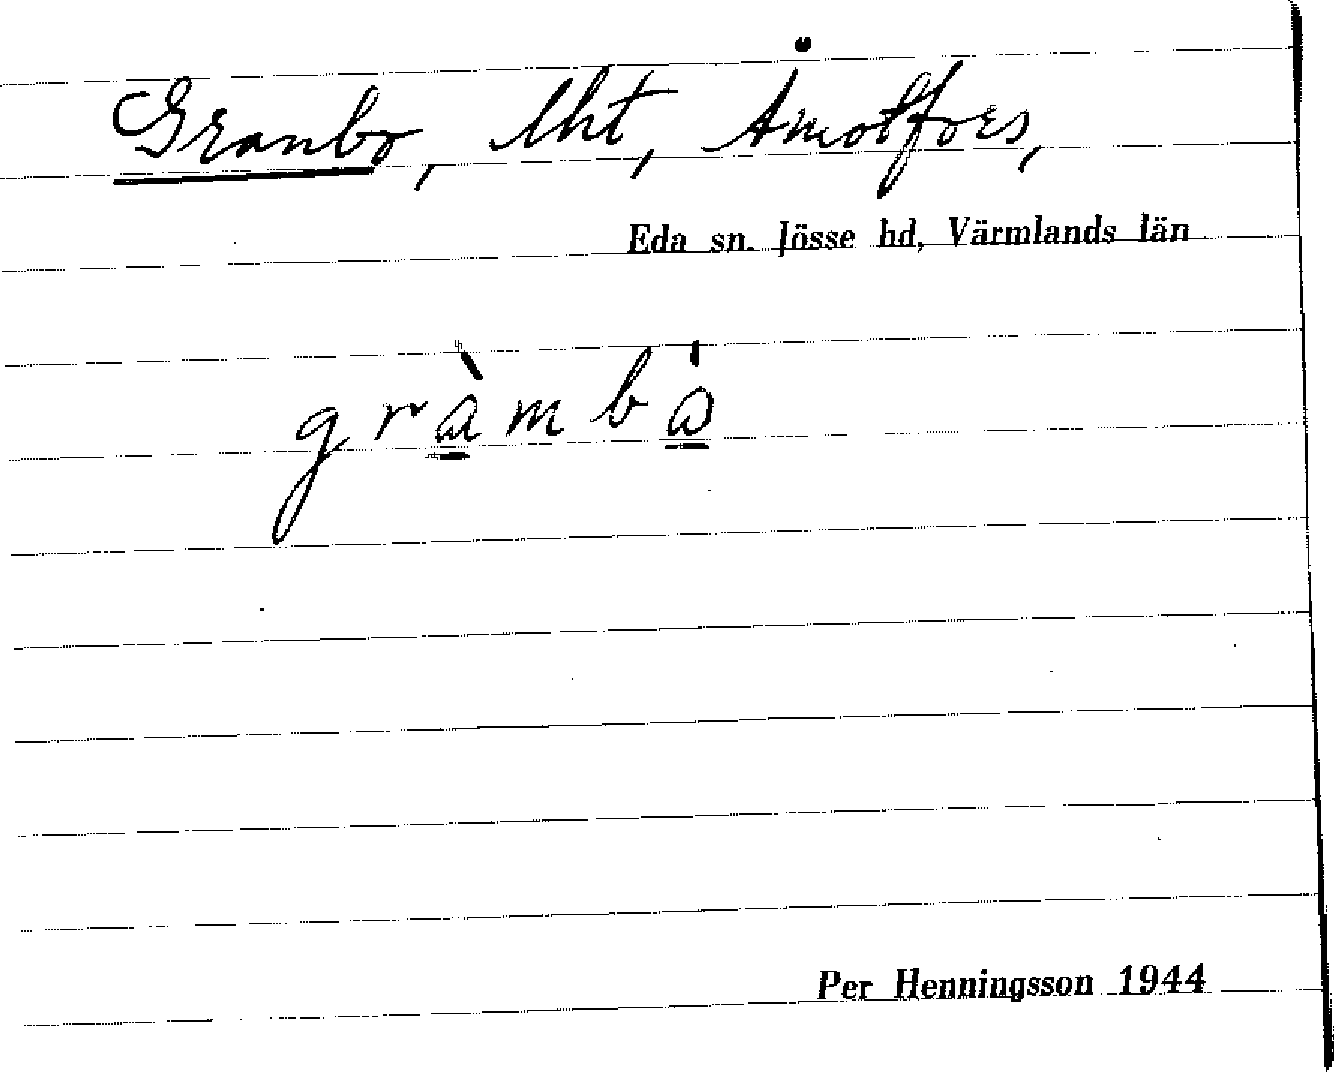 Granbo, lht, Åmotfors,
Eda sn. Jösse hd, Värmlands län
gràmbó
Per Henningsson 1944